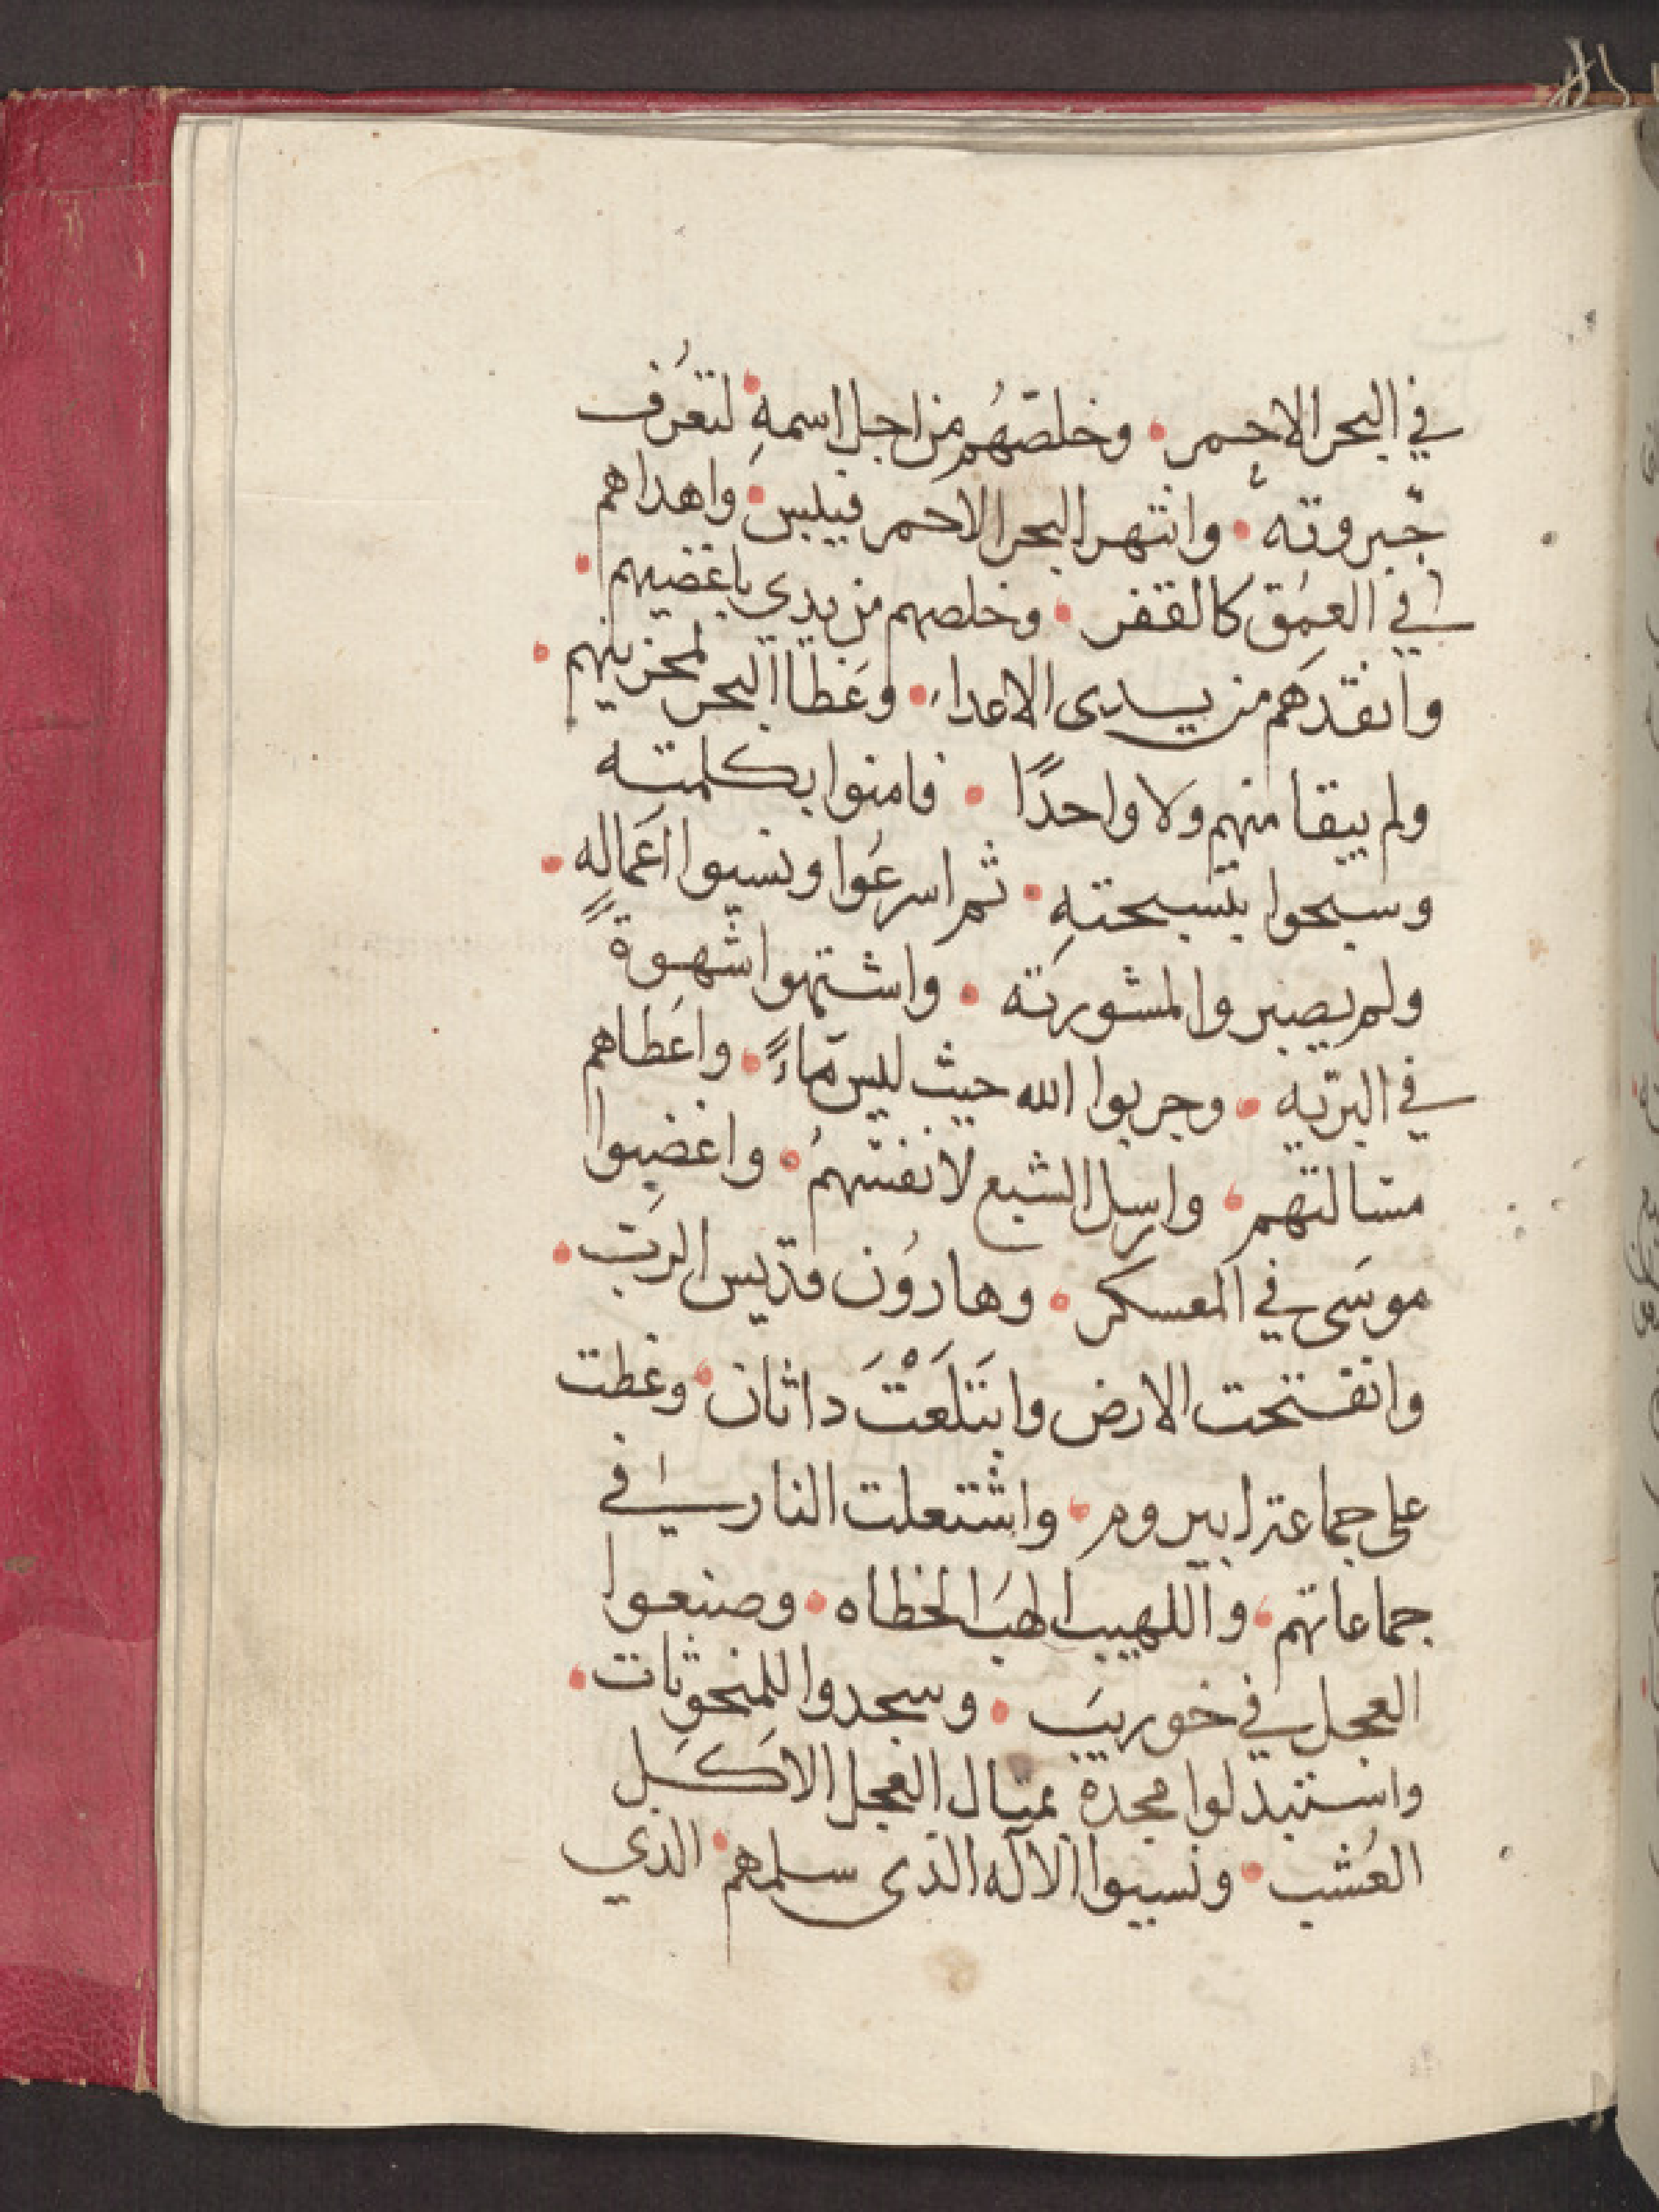 في البحر الاحمر • وخلصّهُم من اجل اسمهِ • لتعرُف
جَبروته • وانتهر البحر الاحمر فيبس • واهداهم
في العمُق كالقفر • وخلصهم من يدي باغضيهم •
وانقدَهم من يدى الاعداء • وغَطا البحر لمحزنيهم •
ولم يبقا منهم ولا واحدًا • فامنوا بكلمته
وسبحوا بتسبحتهِ • ثم اسرعُوا ونسيوا اعَمالهِ •
ولم يصبروا لمشورته • واشتهوا شهوةً
في البرّيه • وجربوا الله حيث ليس مَاءً • واعَطاهم
مسالتهم • وارسل الشبع لانفسهمُ • واغضِبوا
موسَى في المعسكر • وهارُون قدّيس الربّ •
وانفتحت الارض وابتَلَعْتَ داثان • وغطت
على جماعة ابيروم • واشتعلت النار في
جماعاتهم • واللهيب الهبَ الخطاه • وصنعوا
العجل في خوريبَ • وسجدوا للمنحوثات •
واستبدلوا مجدهُ بمثال العجل الاكَل
العُشب • ونسيوا الاله الذى سلمهم • الذي